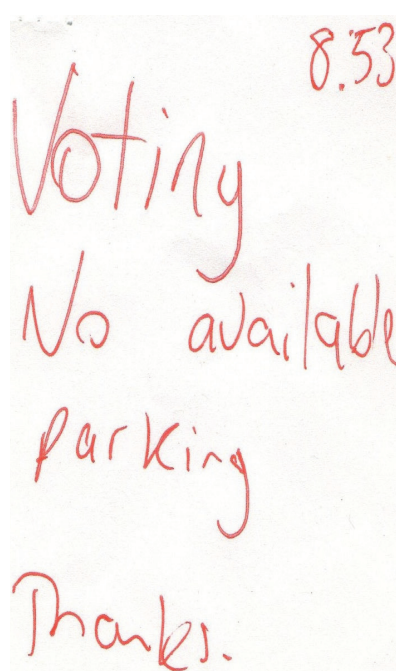 8.53
Voting
No available
parking
Thanks.